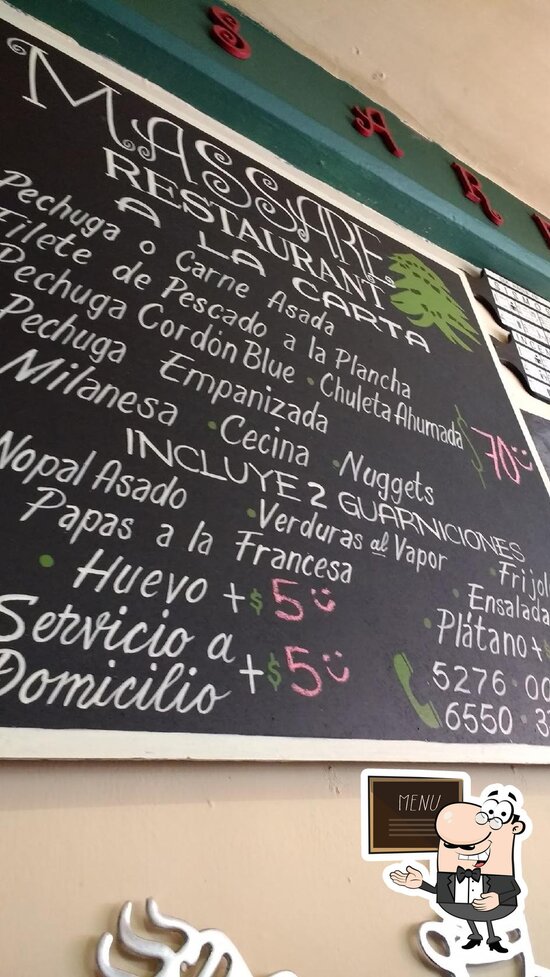 SAR
MASSARE
RESTAURANT
A LA CARTA
Pechuga o Carne Asada
Filete de Pescado a la Plancha
Pechuga Cordón Blue · Chuleta Ahumada
Pechuga Empanizada $70
Milanesa · Cecina · Nuggets
INCLUYE 2 GUARNICIONES
Nopal Asado · Verduras al Vapor · Frijol
Papas a la Francesa · Ensalada
· Huevo + $5 · Plátano + $
Servicio a Domicilio + $5
5276 · 00
6550 · 3
MENU